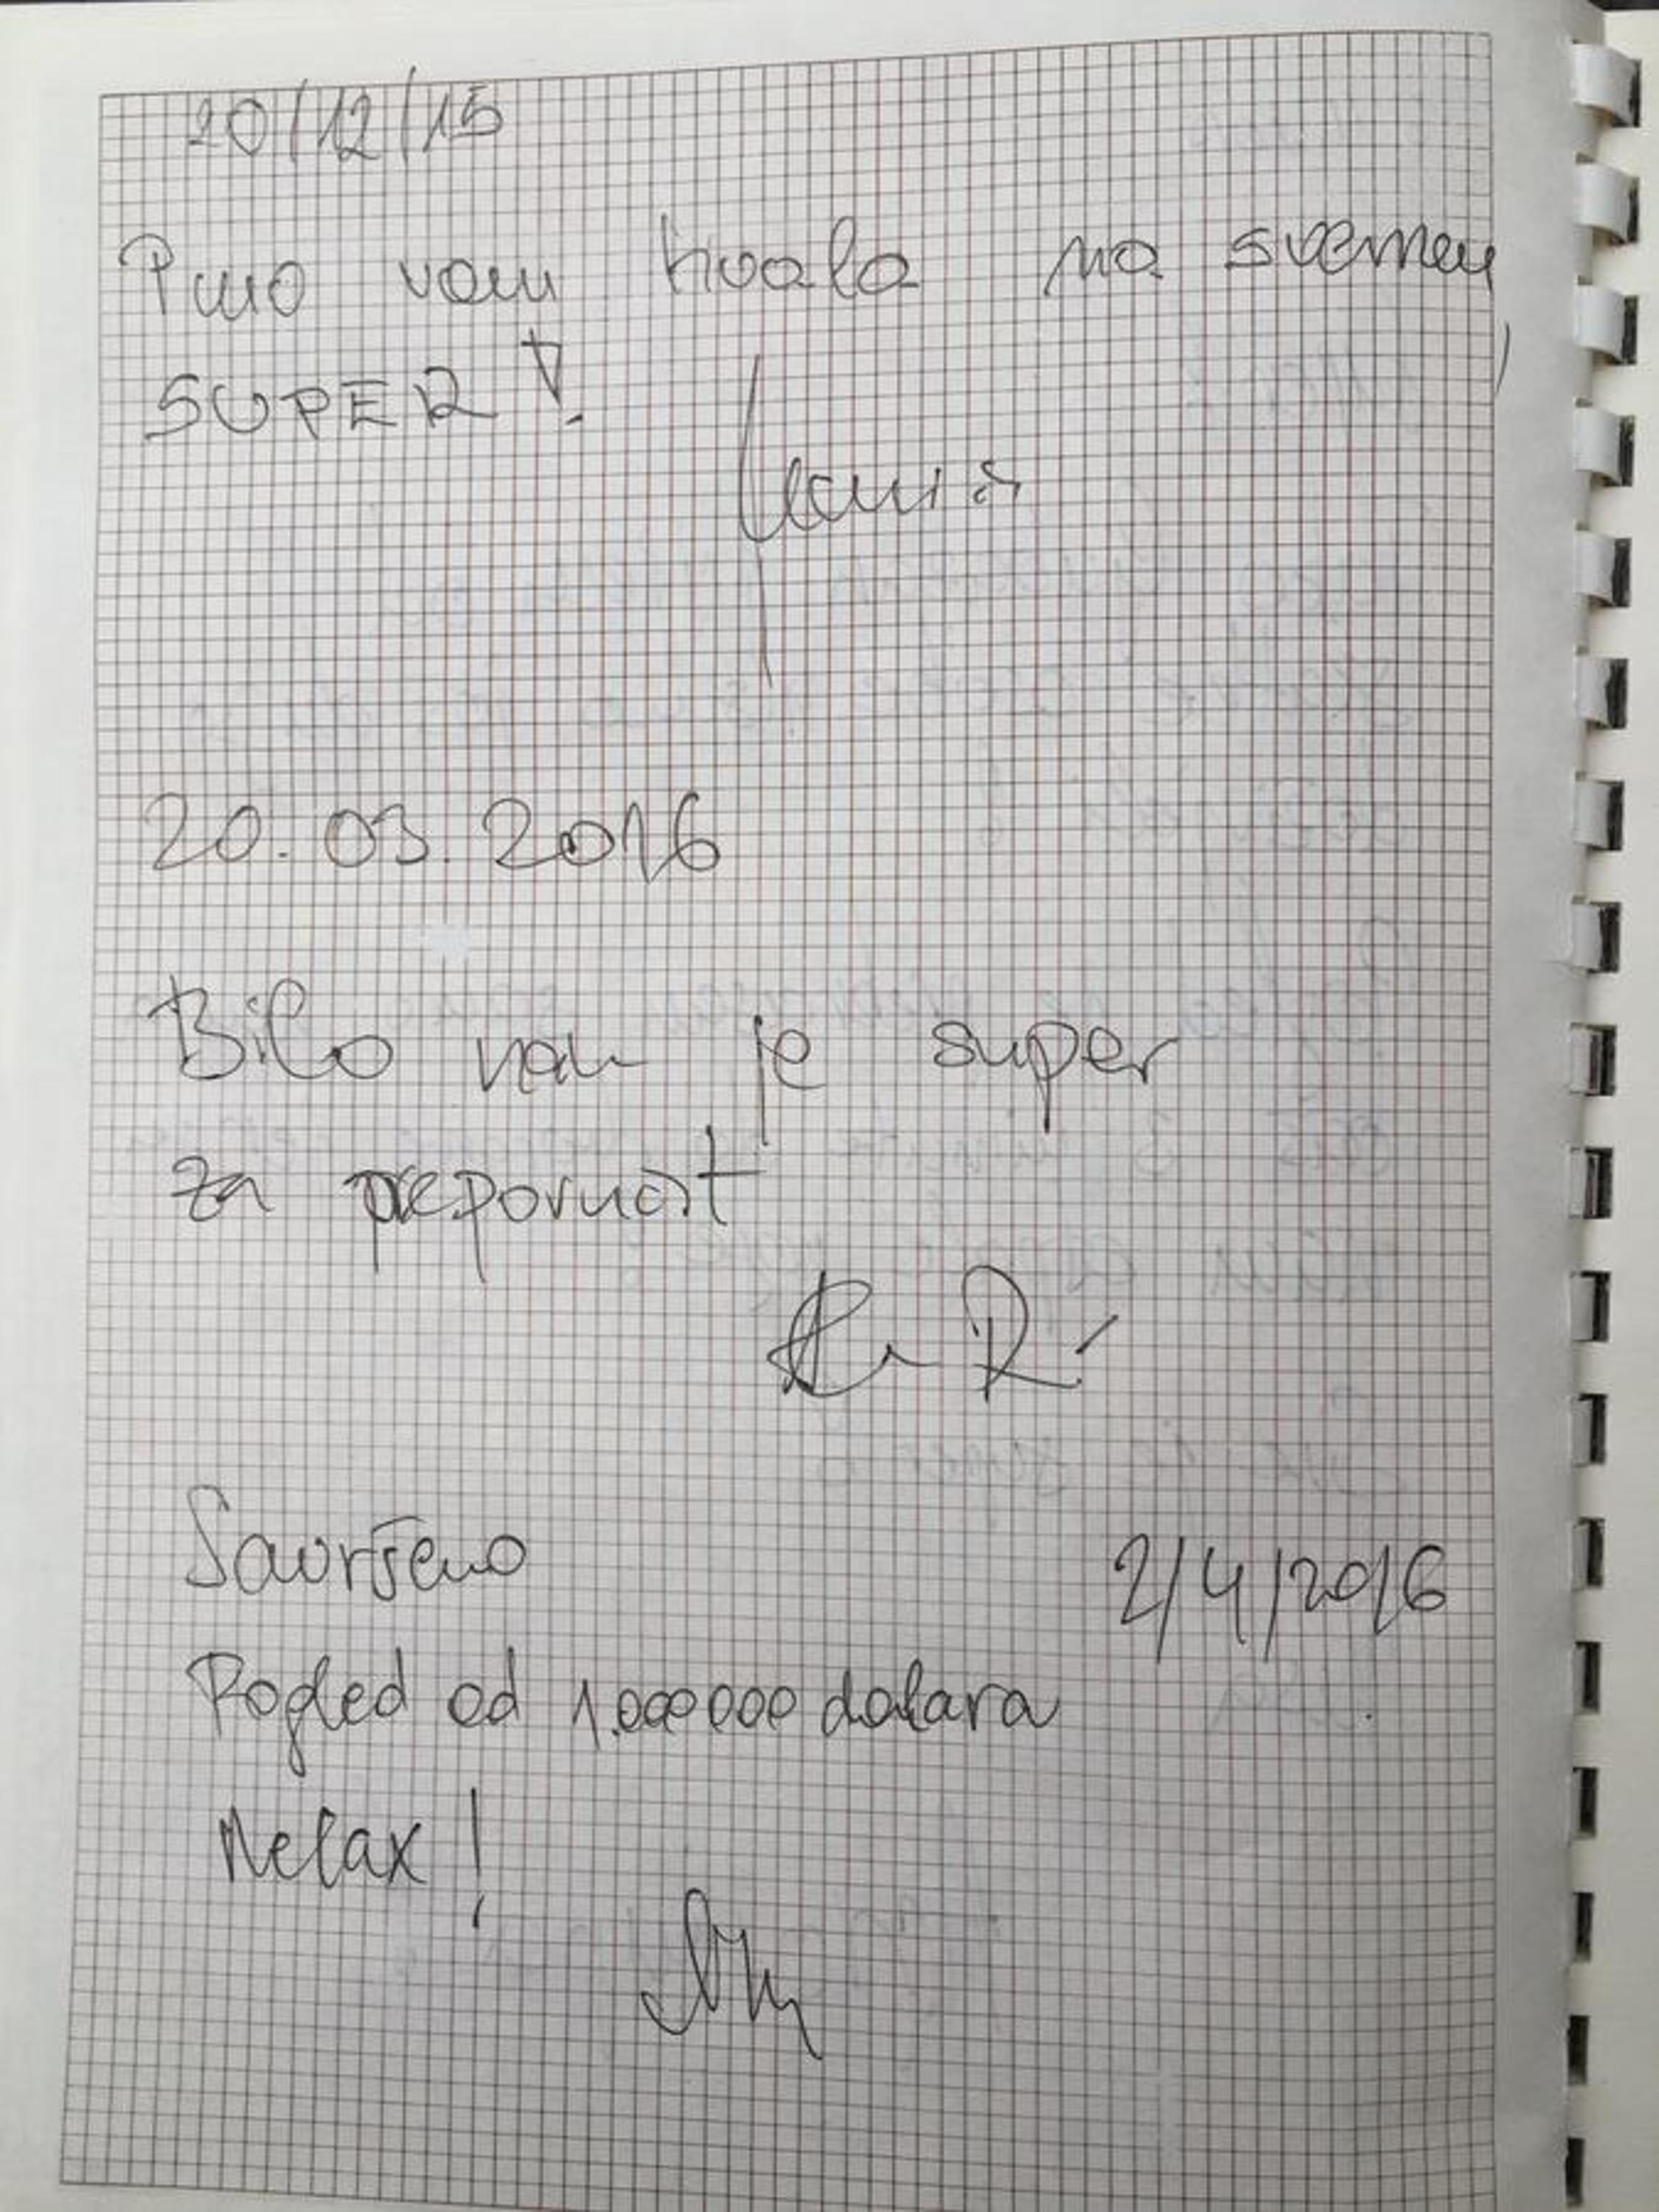 20/12/15
Puno vam hvala na svemu,
SUPER!
20.03.2016
Bilo nam je super
za preporučit
Savršeno 2/4/2016
Pogled od 1.000000 dolara
Relax!